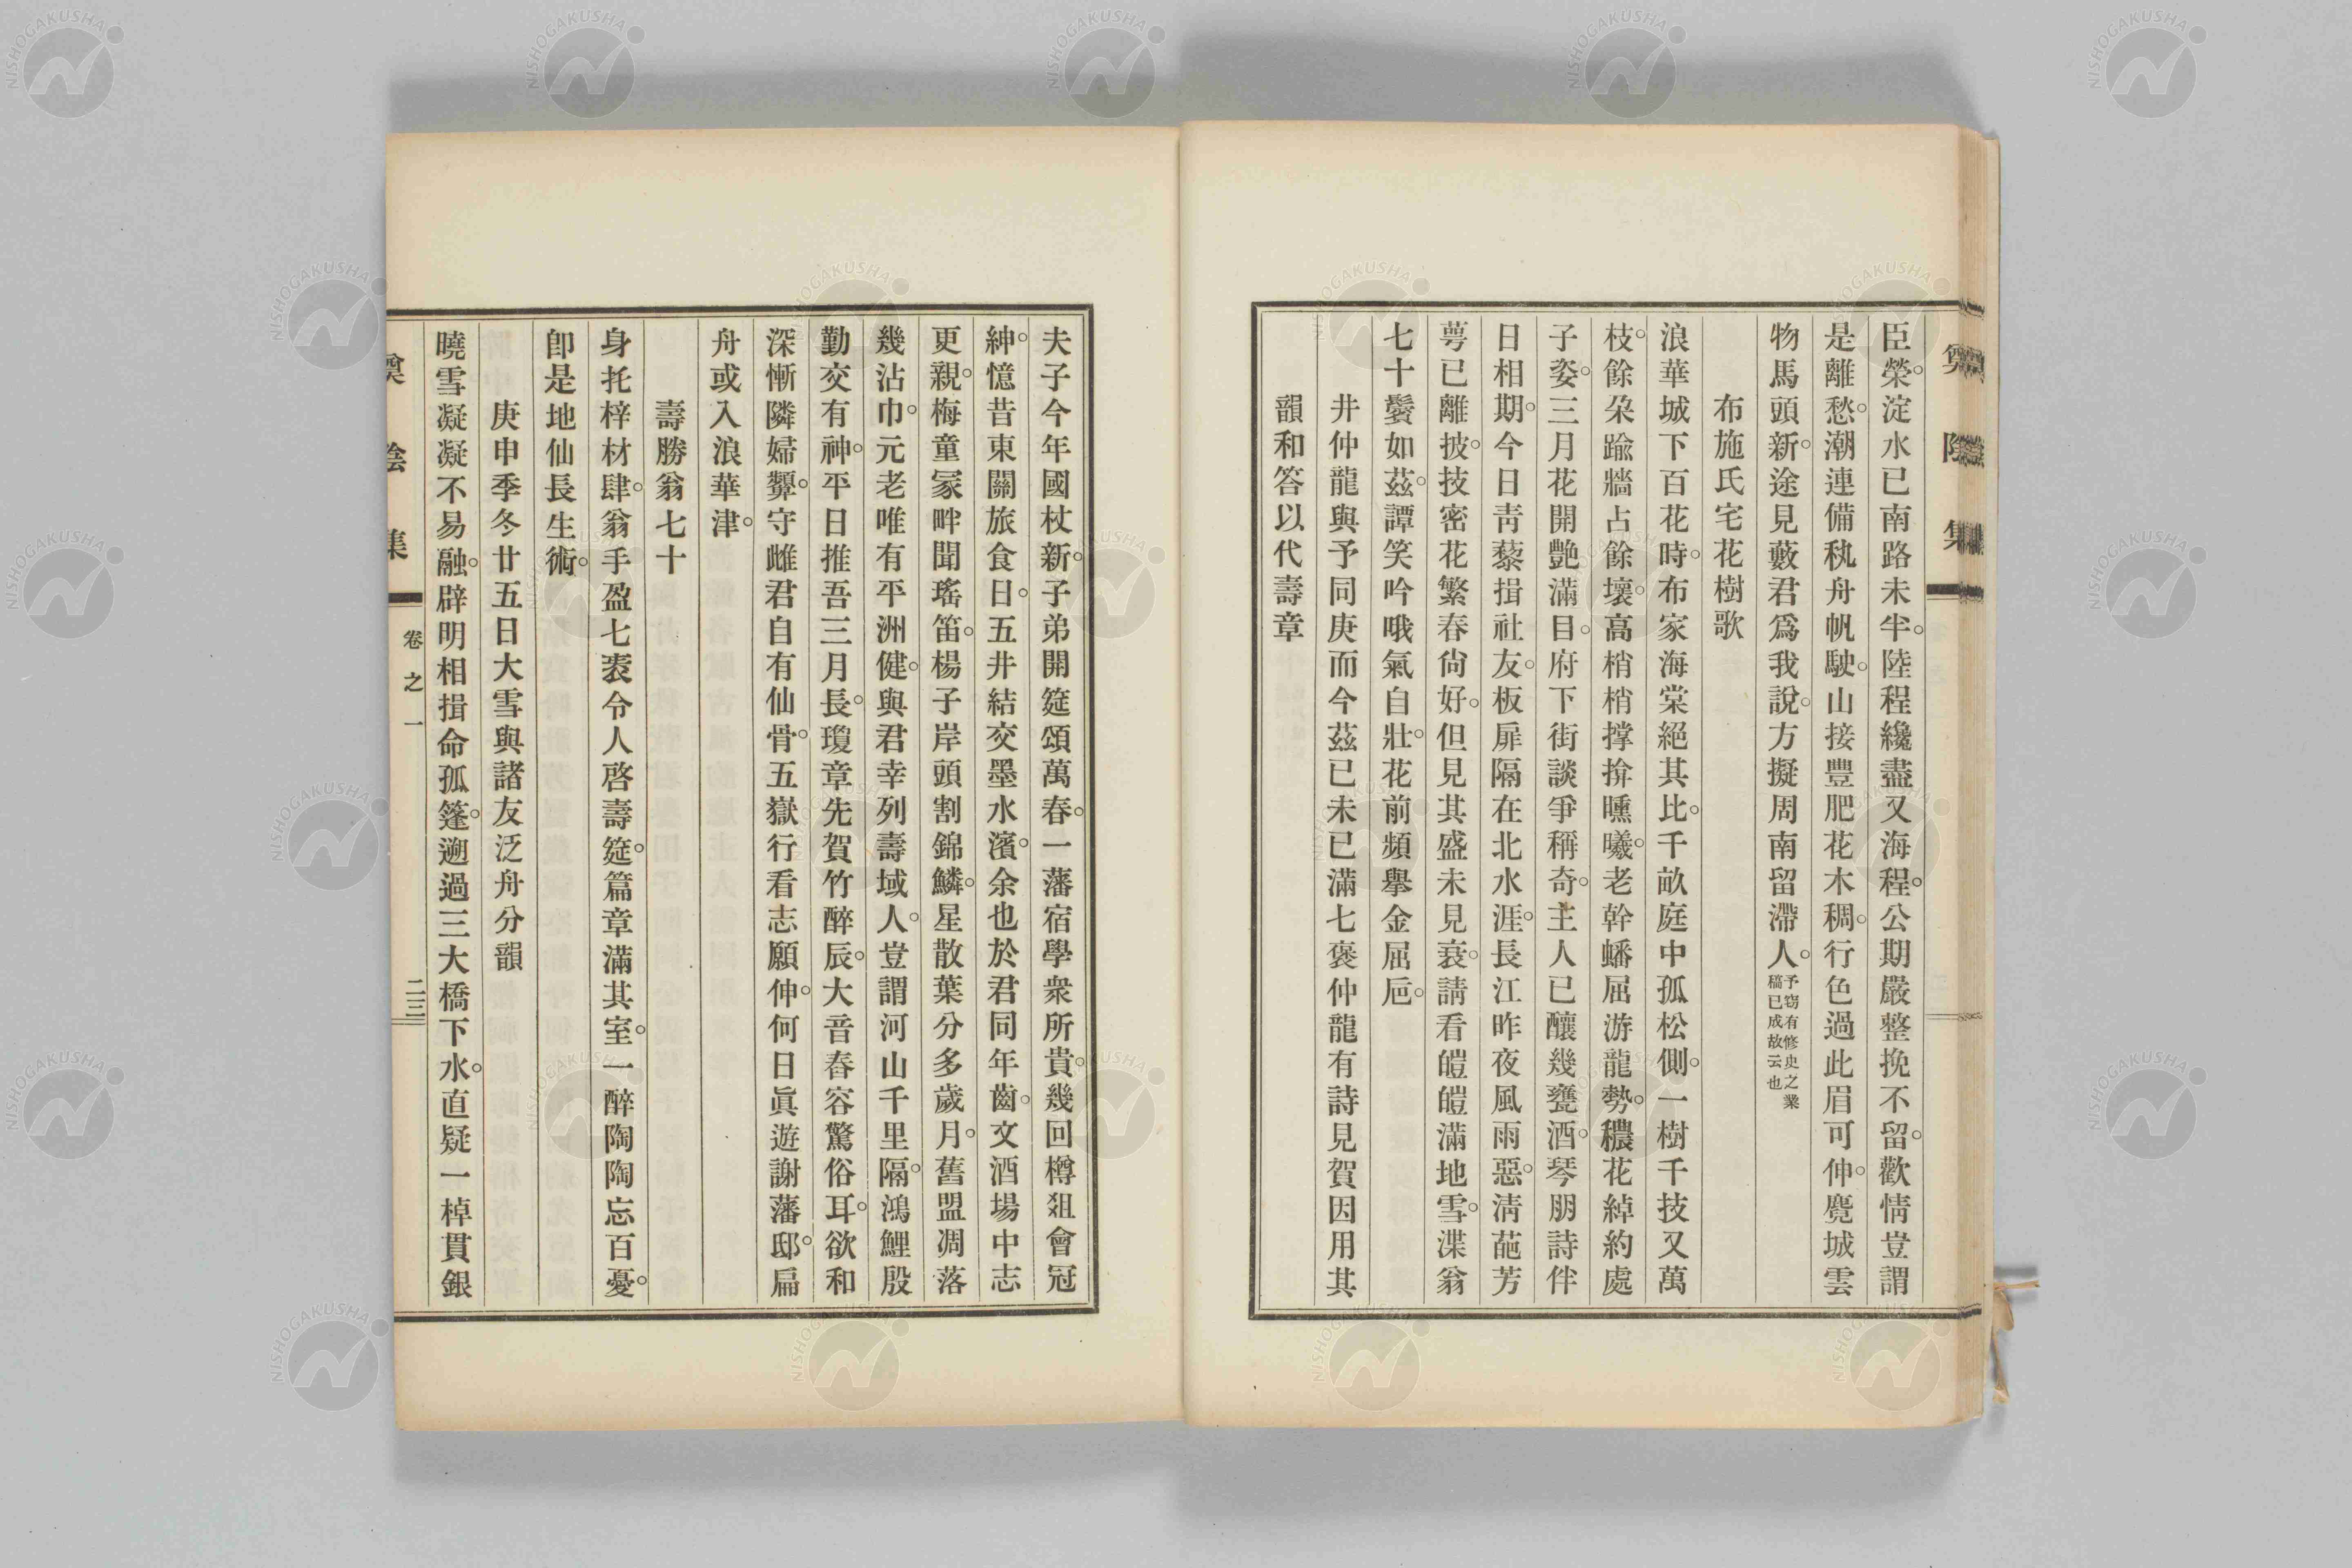 奠陰集
臣榮。淀水已南路未半。陸程纔盡又海程。公期嚴整挽不留。歡情豈謂
是離愁。潮連備秇舟帆駛。山接豐肥花木稠。行色過此眉可伸。麑城雲
物馬頭新。途見藪君爲我說。方擬周南留滯人。予窃有修史之業
稿已成故云也
布施氏宅花樹歌
浪華城下百花時。布家海棠絕其比。千畝庭中孤松側。一樹千技又萬
枝。餘朶踰牆占餘壤。高梢梢撑揜曛曦。老幹蟠屈游龍勢。穠花綽約處
子姿。三月花開艶滿目。府下街談爭稱奇。主人已釀幾甕酒。琴朋詩伴
日相期。今日靑藜揖社友。板扉隔在北水涯。長江昨夜風雨惡。淸葩芳
萼已離披。技密花繁春尙好。但見其盛未見衰。請看皚皚滿地雪。渫翁
七十鬓如茲。譚笑吟哦氣自壯。花前頻擧金屈卮。
井仲龍與予同庚而今茲已未已滿七褒仲龍有詩見賀因用其
韻和答以代壽章
夫子今年國杖新。子弟開筵頌萬春。一藩宿學衆所貴。幾回樽爼會冠
紳。憶昔東關旅食日。五井結交墨水濱。余也於君同年齒。文酒場中志
更親。梅童冢畔聞瑤笛。楊子岸頭割錦鱗。星散葉分多歲月。舊盟凋落
幾沾巾。元老唯有平洲健。與君幸列壽域人。豈謂河山千里隔。鴻鯉殷
勤交有神。平日推吾三月長。瓊章先賀竹醉辰。大音舂容驚俗耳。欲和
深慚隣婦顰。守雌君自有仙骨。五嶽行看志願伸。何日眞遊謝藩邸。扁
舟或入浪華津。
壽勝翁七十
身托梓材肆。翁手盈七袠令人啓壽筵。篇章滿其室。一醉陶陶忘百憂。
卽是地仙長生術。
庚申季冬廿五日大雪與諸友泛舟分韻
曉雪凝凝不易融。辟明相揖命孤篷。遡過三大橋下水。直疑一棹貫銀
奠陰集
卷之一
二三